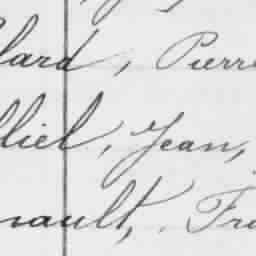 lard, Pierre
lliel, Jean,
nault, Fra